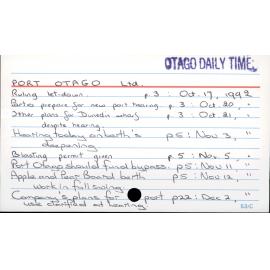 OTAGO DAILY TIMES
PORT OTAGO Ltd.
Ruling let-down. p.3 : Oct. 17, 1992
Parties prepare for new port hearing p.3 : Oct. 20, "
Other plans for Dunedin wharf p.3 : Oct. 21, "
despite hearing.
Hearing today on berth's p5 : Nov 3, "
deepening.
Blasting permit given p5 : Nov 5, "
Port Otago should fund bypass. p5 : Nov 11, "
Apple and Pear Board berth p5 : Nov 12, "
work in full swing.
Company's plans for port p22 : Dec 2, "
use at hearing.